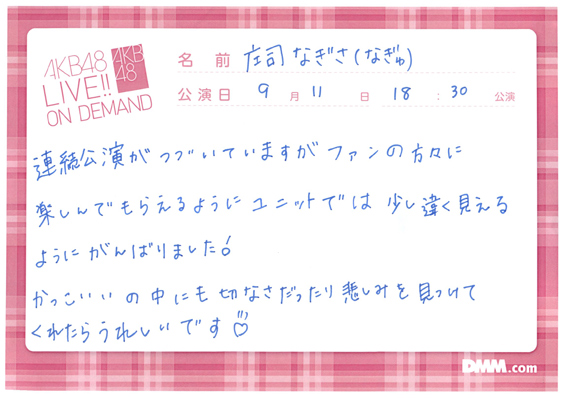 AKB48
LIVE!!
ON DEMAND
AKB
48
名前 庄司なぎさ(なぎゅ)
公演日 9月11日 18:30公演
連続公演がつづいていますがファンの方々に
楽しんでもらえるようにユニットでは少し違く見える
ようにがんばりました!
かっこいいの中にも切なさだったり悲しみを見つけて
くれたらうれしいです♡
DMM.com